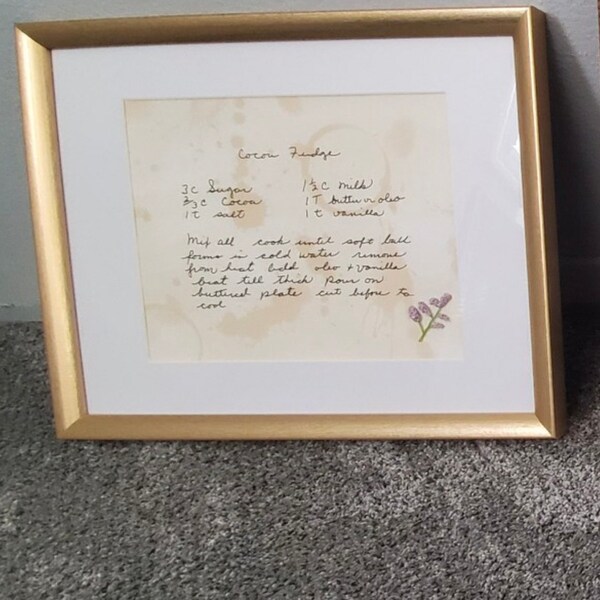 Cocoa Fudge
3c Sugar 1½ c Milk
⅔ c Cocoa 1T butter or oleo
1t salt 1t vanilla
Mix all cook until soft ball
forms in cold water remove
from heat add oleo + vanilla
beat till thick pour on
buttered plate cut before to
cool